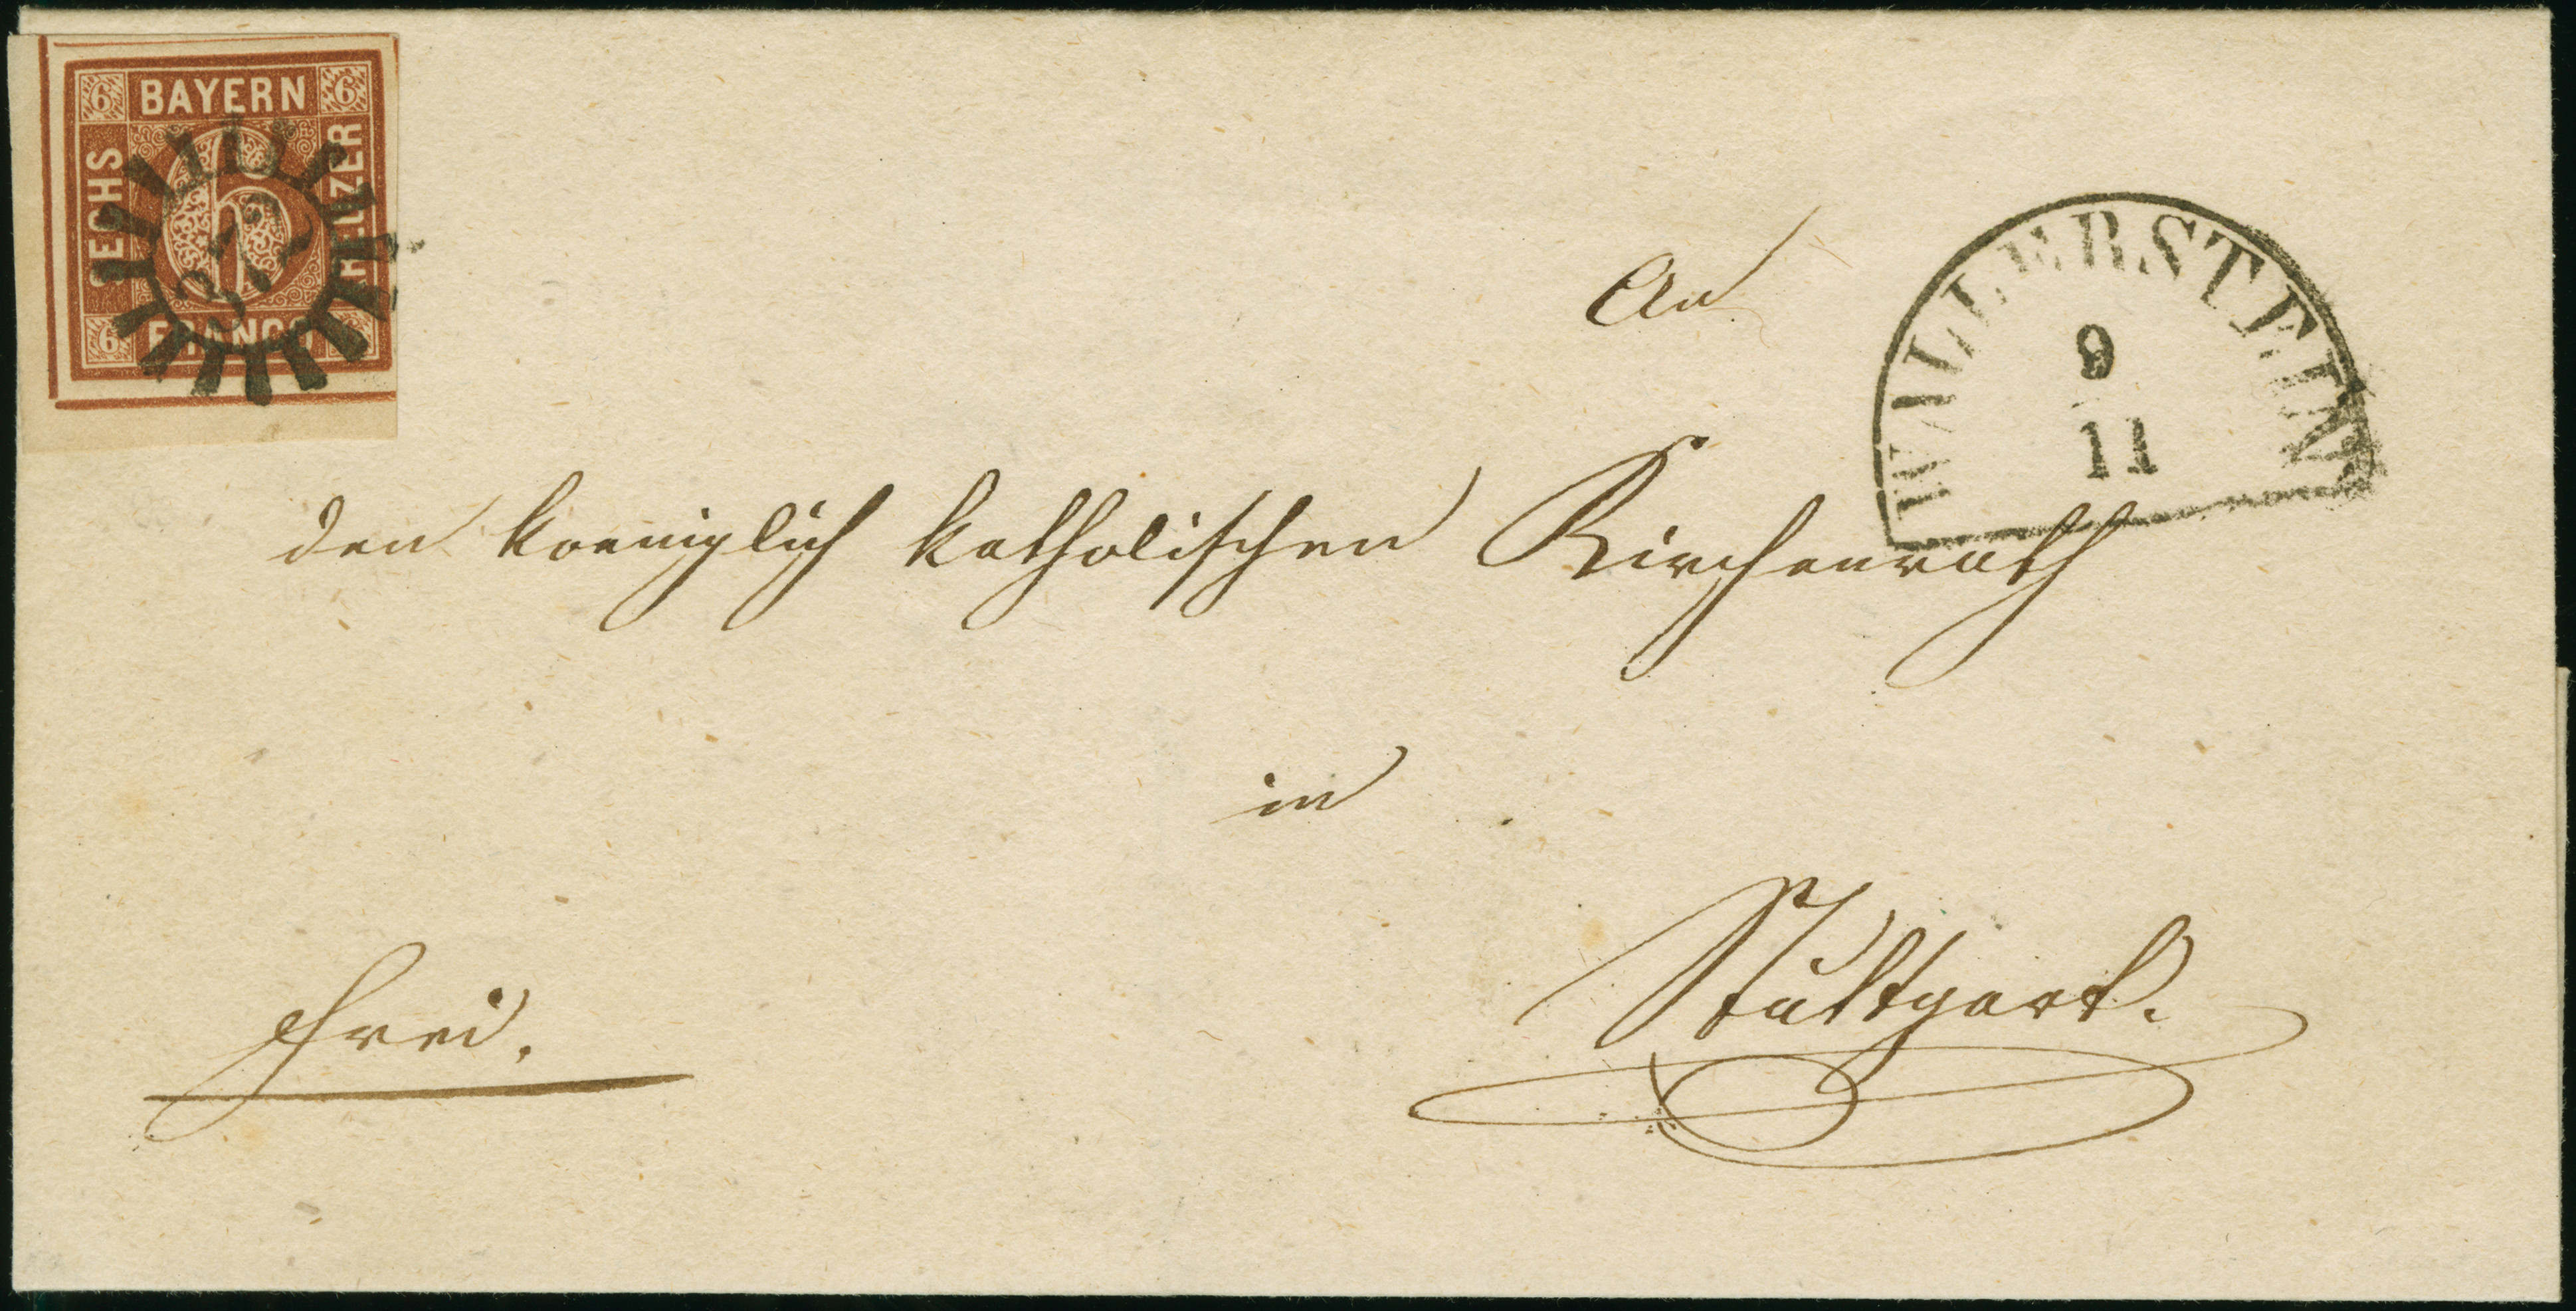 6 BAYERN 6
SECHS
6
KREUZER
6 FRANCO
372
WALLERSTEIN
9
11
An
den koeniglich katholischen Kirchenrath
in
Stuttgart.
Frei.